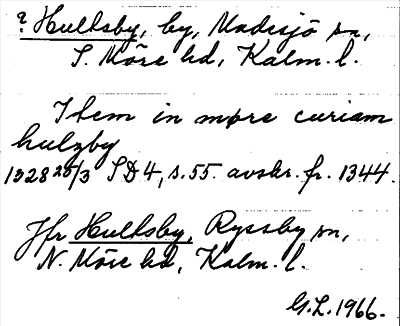 ? Hultsby, by, Madesjö sn,
S. Möre hd, Kalm. l.
Item in møre curiam
hulzby
1328 25/3 SD 4, s. 55. avskr. fr. 1344.
Jfr Hultsby, Ryssby sn,
N. Möre hd, Kalm. l.
G.L. 1966.